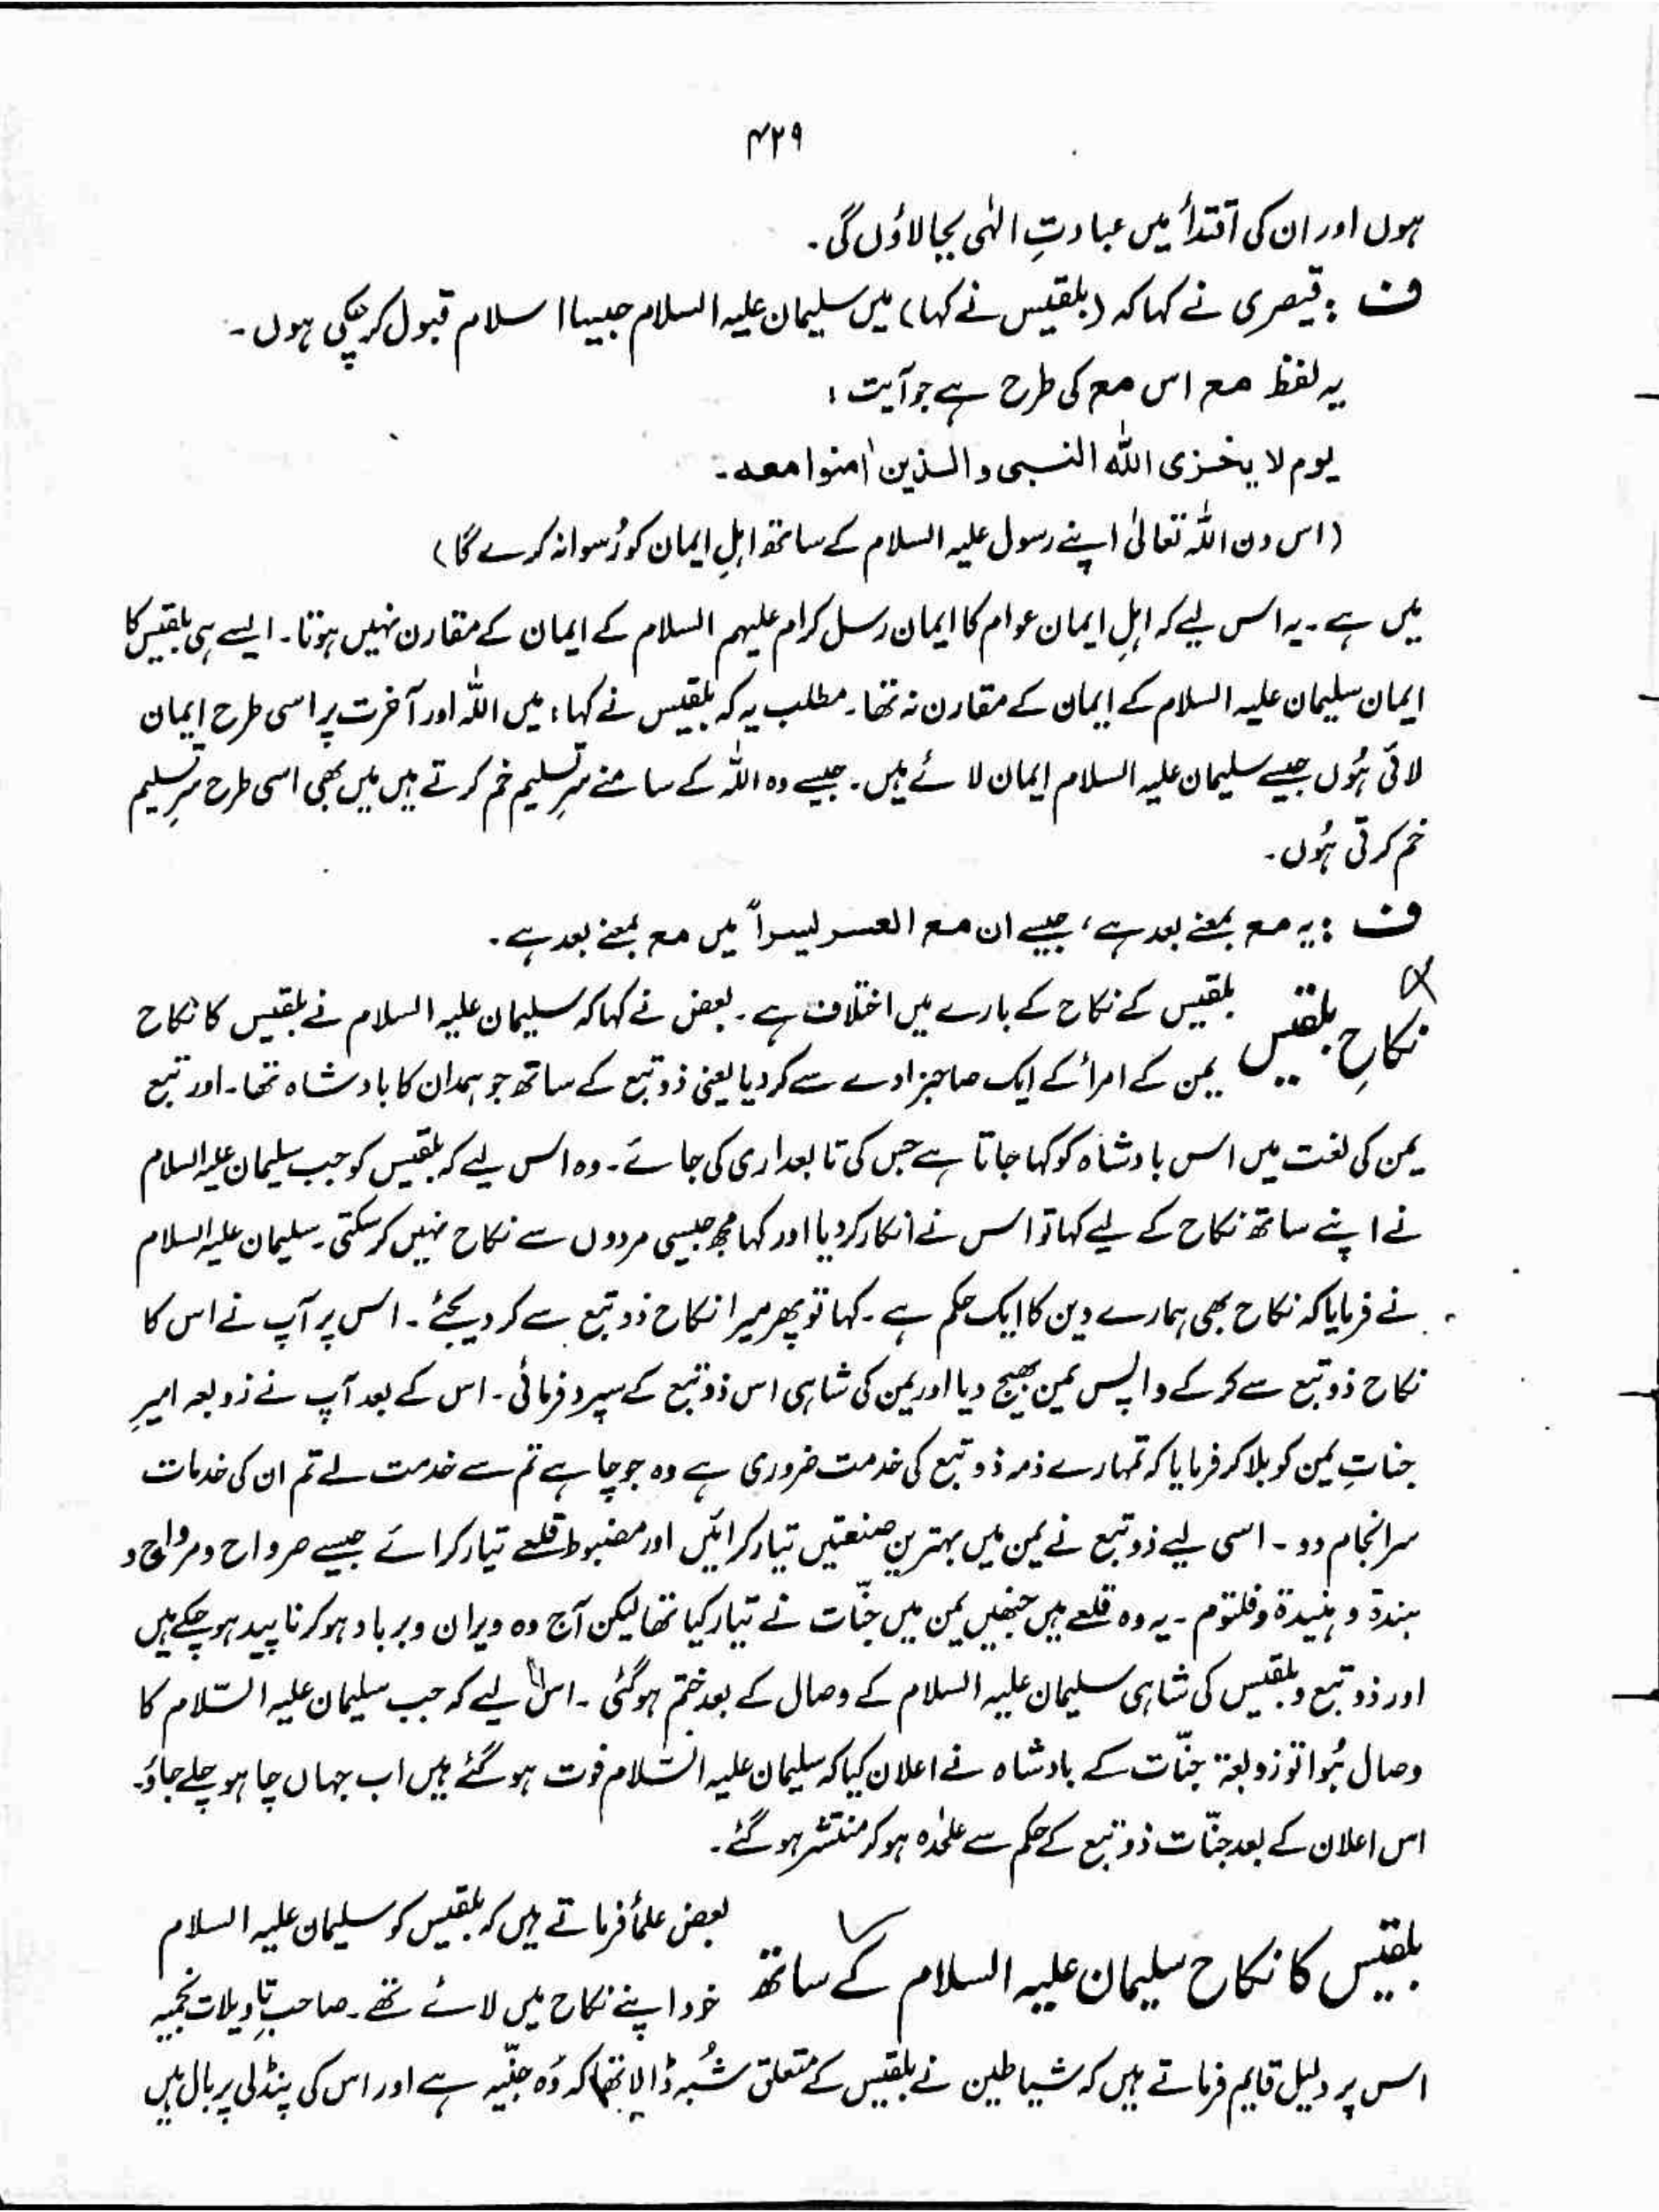 ۴۲۹
ہوں اور ان کی اقتدأ میں عبادتِ الٰہی بجا لاؤں گی۔
ف : قیصری نے کہا کہ (بلقیس نے کہا) میں سلیمان علیہ السلام جیسا اسلام قبول کر چکی ہوں۔
یہ لفظ مع اس مع کی طرح ہے جو آیت :
یوم لا یخزی اللّٰہ النبی والذین اٰمنوا معہ۔
(اس دن اللہ تعالیٰ اپنے رسول علیہ السلام کے ساتھ اہلِ ایمان کو رُسوا نہ کرے گا)
میں ہے۔ یہ اس لیے کہ اہلِ ایمان عوام کا ایمان رسل کرام علیہم السلام کے ایمان کے مقارن نہیں ہوتا۔ ایسے ہی بلقیس کا
ایمان سلیمان علیہ السلام کے ایمان کے مقارن نہ تھا۔ مطلب یہ کہ بلقیس نے کہا : میں اللہ اور آخرت پر اسی طرح ایمان
لائی ہُوں جیسے سلیمان علیہ السلام ایمان لائے ہیں۔ جیسے وہ اللہ کے سامنے سرِ تسلیم خم کرتے ہیں میں بھی اسی طرح سرِ تسلیم
خم کرتی ہُوں۔
ف : یہ مع بمعنے بعد ہے، جیسے ان مع العسر یسراً میں مع بمعنے بعد ہے۔
نکاحِ بلقیس بلقیس کے نکاح کے بارے میں اختلاف ہے۔ بعض نے کہا کہ سلیمان علیہ السلام نے بلقیس کا نکاح
یمن کے امرأ کے ایک صاحبزادے سے کر دیا یعنی ذوتبع کے ساتھ جو ہمدان کا بادشاہ تھا۔ اور تبع
یمن کی لغت میں اس بادشاہ کو کہا جاتا ہے جس کی تابعداری کی جائے۔ وہ اس لیے کہ بلقیس کو جب سلیمان علیہ السلام
نے اپنے ساتھ نکاح کے لیے کہا تو اس نے انکار کر دیا اور کہا مجھ جیسی مردوں سے نکاح نہیں کر سکتی۔ سلیمان علیہ السلام
نے فرمایا کہ نکاح بھی ہمارے دین کا ایک حکم ہے۔ کہا تو پھر میرا نکاح ذوتبع سے کر دیجئے۔ اس پر آپ نے اس کا
نکاح ذوتبع سے کر کے واپس یمن بھیج دیا اور یمن کی شاہی اس ذوتبع کے سپرد فرمائی۔ اس کے بعد آپ نے زوبعہ امیرِ
جناتِ یمن کو بلا کر فرمایا کہ تمہارے ذمہ ذوتبع کی خدمت ضروری ہے وہ جو چاہے تم سے خدمت لے تم ان کی خدمات
سرانجام دو۔ اسی لیے ذوتبع نے یمن میں بہترین صنعتیں تیار کرائیں اور مضبوط قلعے تیار کرائے جیسے صرواح و مرواح و
ہندۃ و ہنیدۃ و فلتوم۔ یہ وہ قلعے ہیں جنھیں یمن میں جنّات نے تیار کیا تھا لیکن آج وہ ویران و برباد ہو کر ناپید ہو چکے ہیں
اور ذوتبع و بلقیس کی شاہی سلیمان علیہ السلام کے وصال کے بعد ختم ہو گئی۔ اس لیے کہ جب سلیمان علیہ السّلام کا
وصال ہُوا تو زوبعۃ جنّات کے بادشاہ نے اعلان کیا کہ سلیمان علیہ السّلام فوت ہو گئے ہیں اب جہاں چاہو چلے جاؤ۔
اس اعلان کے بعد جنّات ذوتبع کے حکم سے علٰحدہ ہو کر منتشر ہو گئے۔
بلقیس کا نکاح سلیمان علیہ السلام کے ساتھ بعض علمأ فرماتے ہیں کہ بلقیس کو سلیمان علیہ السلام
خود اپنے نکاح میں لائے تھے۔ صاحبِ تاویلات نجمیہ
اس پر دلیل قایم فرماتے ہیں کہ شیاطین نے بلقیس کے متعلق شُبہ ڈالا تھا کہ وُہ جنّیہ ہے اور اس کی پنڈلی پر بال ہیں